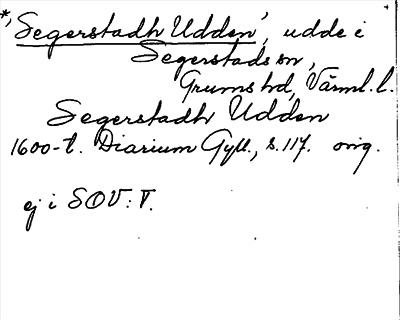 *'Segerstadh Udden', udde i
Segerstads sn,
Grums hd, Värml. l.
Segerstadh Udden
1600-t. Diarium Gyll., s. 117. orig.
ej i SOV: V.